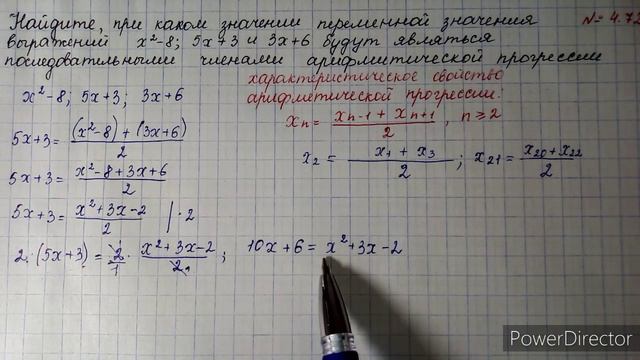 Найдите, при каком значении переменной значения № 4.72
выражений x²-8; 5x+3 и 3x+6 будут являться
последовательными членами арифметической прогрессии
характеристическое свойство
арифметической прогрессии:
x² - 8; 5x+3; 3x+6
xₙ = (xₙ₋₁ + xₙ₊₁)/2, n ≥ 2
5x+3 = ((x²-8) + (3x+6))/2
x₂ = (x₁ + x₃)/2; x₂₁ = (x₂₀ + x₂₂)/2
5x+3 = (x²-8+3x+6)/2
5x+3 = (x²+3x-2)/2 |·2
2·(5x+3) = 2/1 · (x²+3x-2)/2₁; 10x+6 = x²+3x-2
PowerDirector